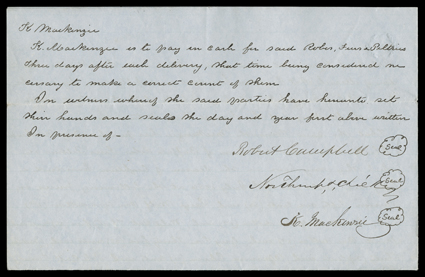 K Mackenzie
K. Mackenzie is to pay in cash for said Robes, Furs & Peltries
three days after each delivery, that time being considered ne
cessary to make a correct count of them
In witness whereof the said parties have hereunto set
their hands and seals the day and year first above written
In presence of -
Robert Campbell Seal
Northrup & Seal
K. Mackenzie Seal